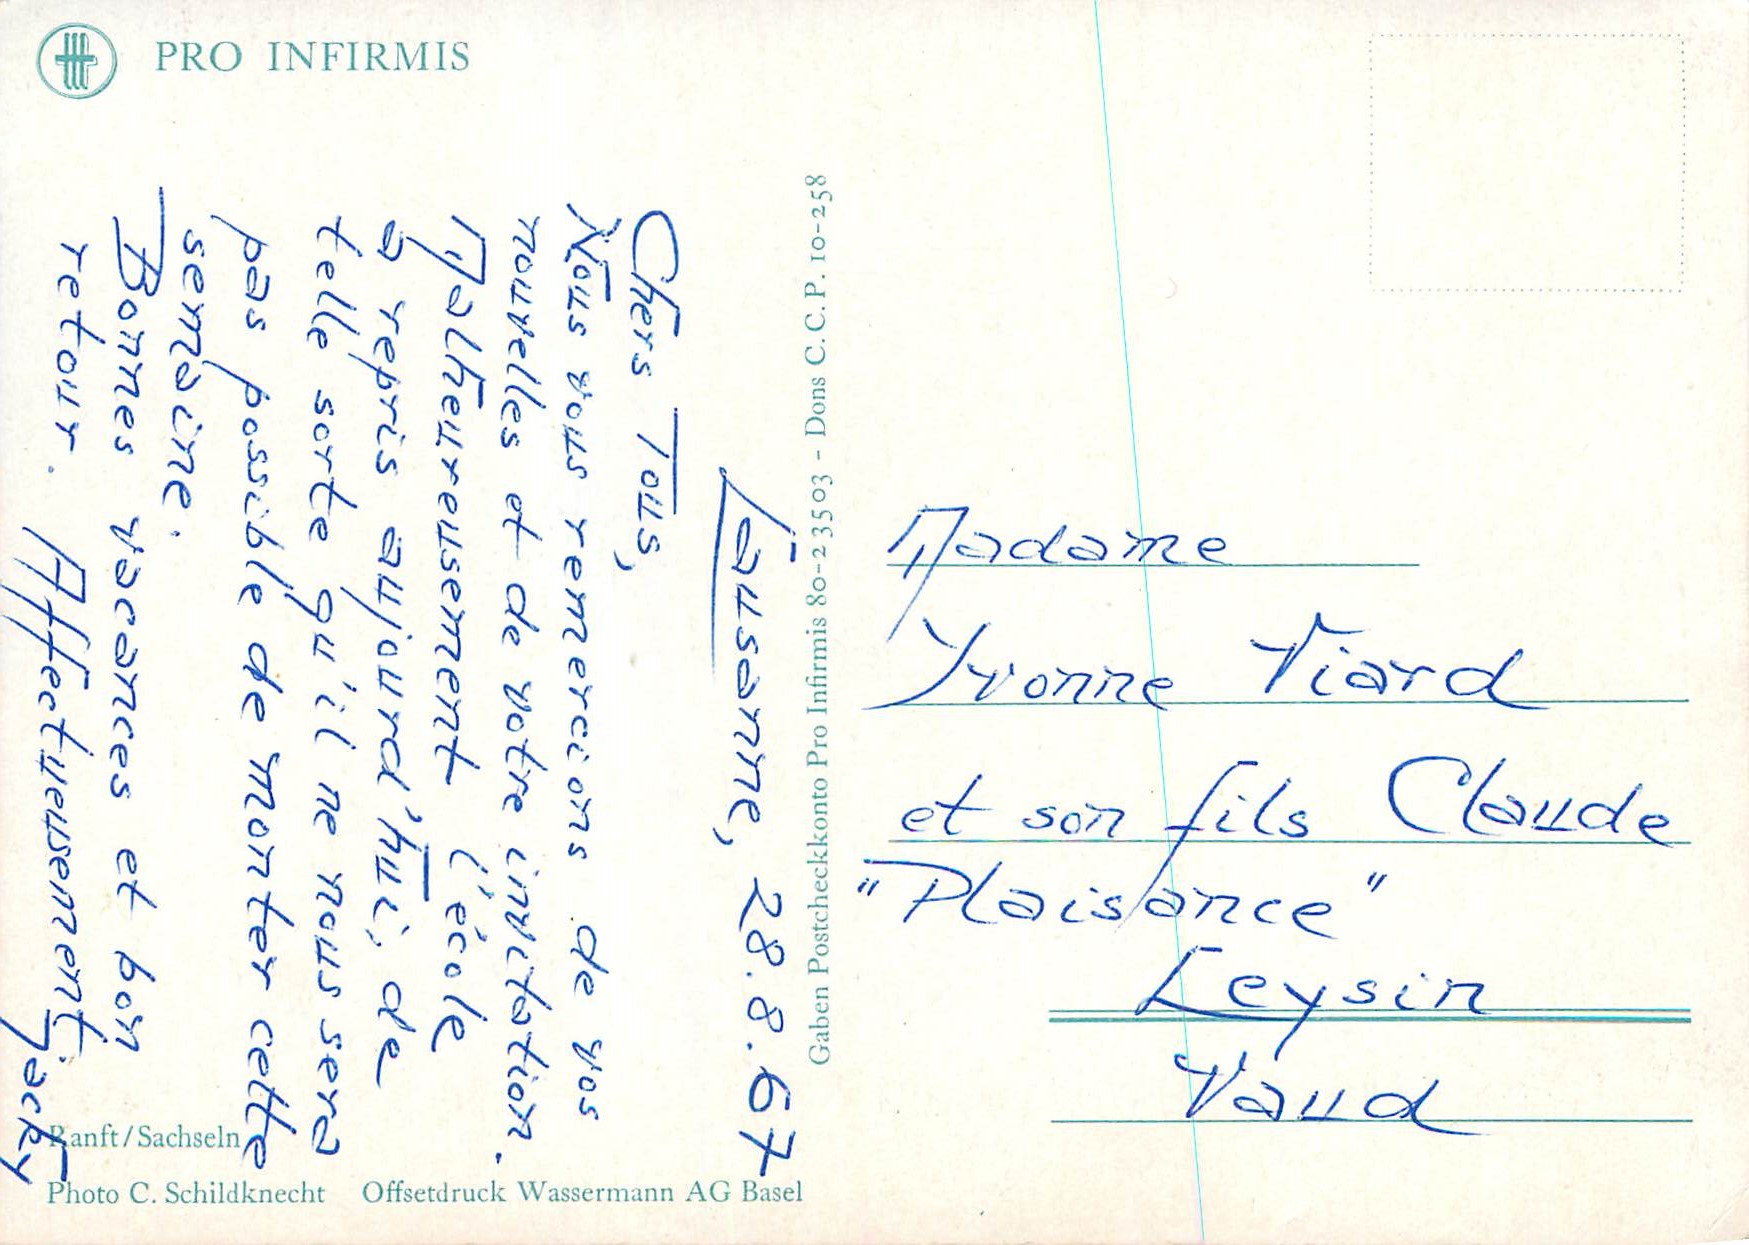 PRO INFIRMIS
Lausanne, 28.8.67
Chers Tous,
Nous vous remercions de vos
nouvelles et de votre invitation.
Malheureusement l'école
a repris aujourd'hui, de
telle sorte qu'il ne nous sera
pas possible de monter cette
semaine.
Bonnes vacances et bon
retour. Affectueusement, Jacky
Ranft/Sachseln
Photo C. Schildknecht Offsetdruck Wassermann AG Basel
Gaben Postcheckkonto Pro Infirmis 80-23503 - Dons C. C. P. 10-258
Madame
Yvonne Viard
et son fils Claude
"Plaisance"
Leysin
Vaud